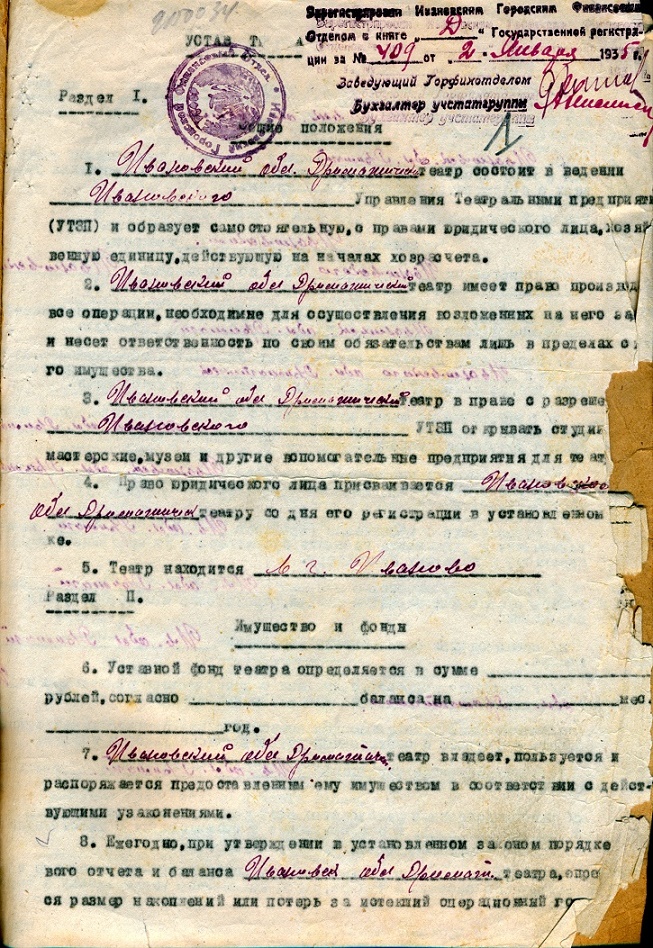 Зарегистрирован Ивановским Городским Финансовым
Отделом в книге „Д“ Государственной регистра-
ции за № 409 от 2 Января 1935 г.
УСТАВ
Заведующий Горфинотделом
Бухгалтер учетатгруппы
Раздел I.
1
Общие положения
1. Ивановский обл. Драматический театр состоит в ведении
Ивановского Управления Театральными предприяти
(УТЗП) и образует самостоятельную, с правами юридического лица, хозяй
венную единицу, действующую на началах хозрасчета.
2. Ивановский обл Драматический театр имеет право производ
все операции, необходимые для осуществления возложенных на него за
и несет ответственность по своим обязательствам лишь в пределах с
го имущества.
3. Ивановский обл Драматический Театр в праве с разреше
Ивановского УТЗП открывать студии
мастерские, музеи и другие вспомогательные предприятия для теат
4. Право юридического лица присваивается Ивановскому
обл Драматическ театру со дня его регистрации в установленном
ке.
5. Театр находится в г. Иваново
Раздел П.
Имущество и фонды
6. Уставной фонд театра определяется в сумме
рублей, согласно баланса на мес.
год.
7. Ивановский обл Драматич. театр владеет, пользуется и
распоряжается предоставленным ему имуществом в соответствии с дейст-
вующими узаконениями.
8. Ежегодно, при утверждении в установленном законом порядке
вого отчета и баланса Ивановск обл Драмат. театра, опре
ся размер накоплений или потерь за истекший операционный го